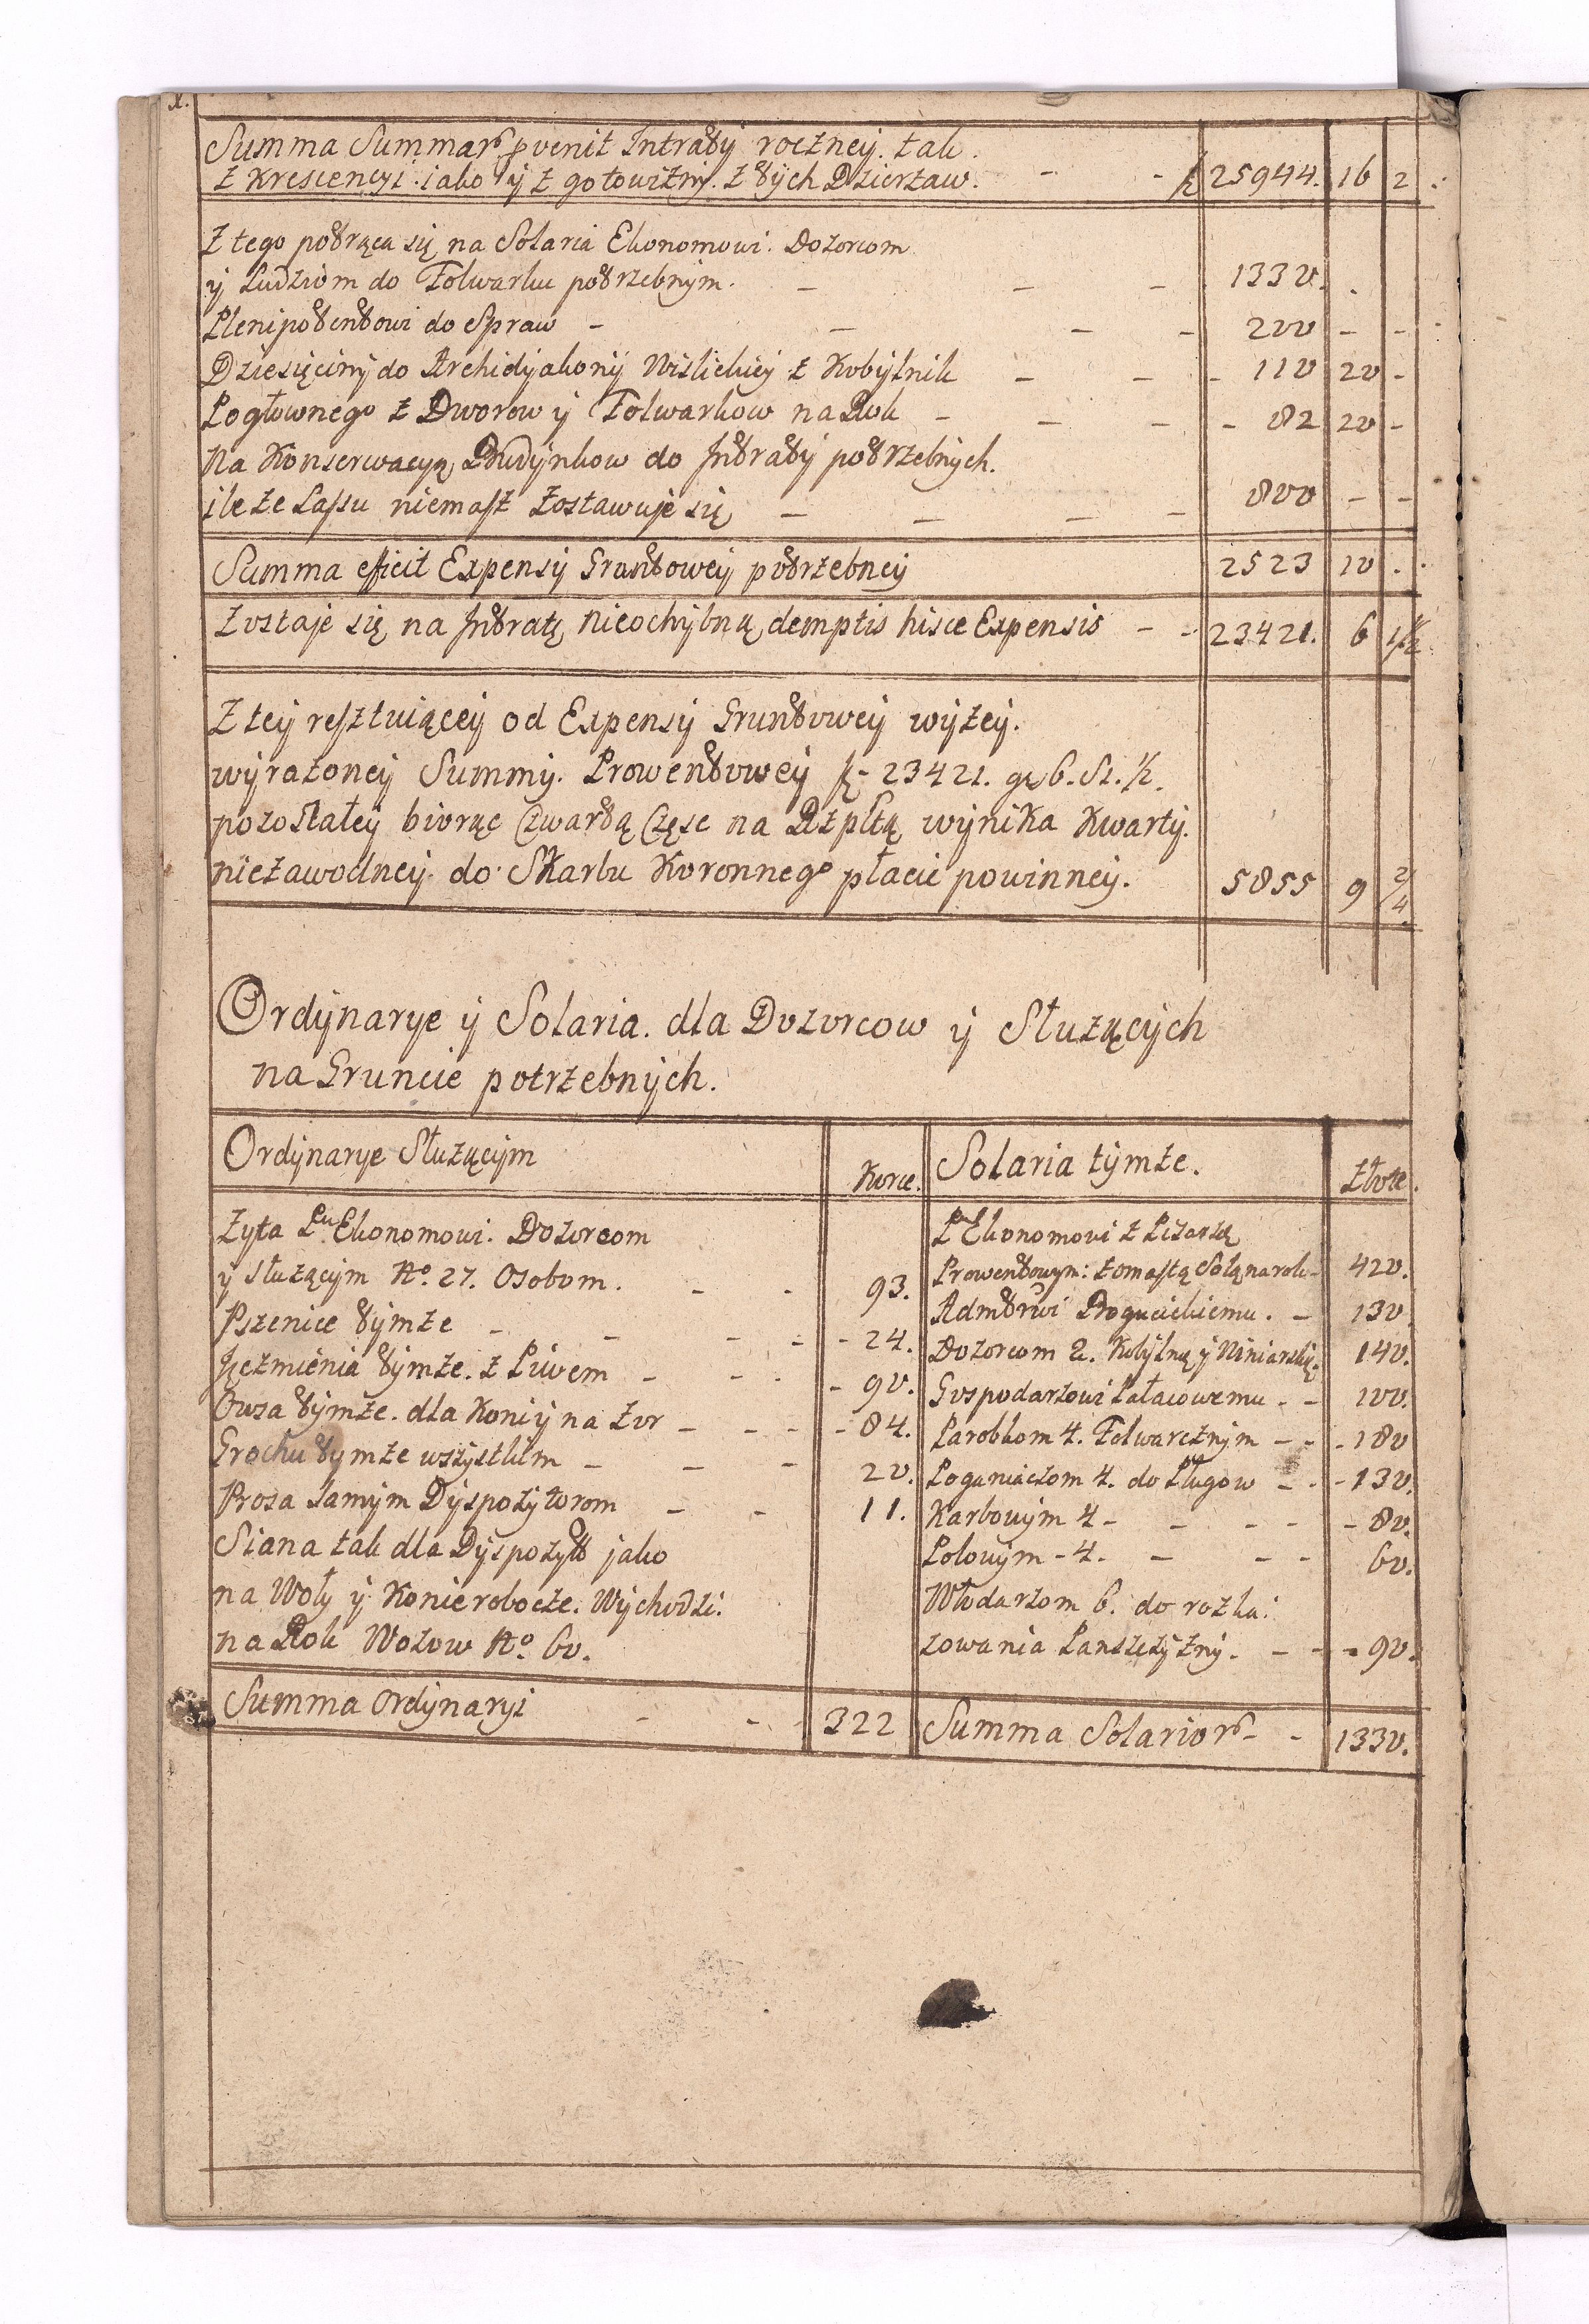 Summa Summar. pvenit Intraty roczney. tak.
z Krescencyi. iako y z gotowizny. z tych Dzierzaw. - - f 25944. 16 2
Z tego potrąca się na Solaria Ekonomowi. Dozorcom
y Ludziom do Folwarku potrzebnym. - - - 1330. .
Plenipotentowi do Spraw - - - - 200 - -
Dziesięciny do Archidyakonij Wislickiey z Kobylnik - - - 110 20 -
Pogłownego z Dworow y Folwarkow na Rok - - - - 82 20 -
Na Konserwacyą Budynkow do Intraty potrzebnych.
ile ze Lassu niemasz zostawuje się - - - - 800 - -
Summa efficit Expensy Gruntowey potrzebney 2523 10 . .
Zostaje się na Intratę nieochybną demptis hisce Expensis - - 23421. 6 1 1/2
Z tey resztuiącey od Expensy Gruntowey wyzey.
wyrazoney Summy. Prowentowey f - 23421. gr 6. S 1. 1/2.
pozostałey biorąc Czwartą Częsc na Rzpltą wynika Kwarty.
niezawodney. do Skarbu Koronnego płacic powinney. 5855 9 2/4
Ordynarye y Solaria. dla Dozorcow y Słuzących
na Gruncie potrzebnych.
Ordynarye Słuzącym Korce. Solaria tymze. Złote.
Zyta Pu Ekonomowi. Dozorcom
y słuzącym No. 27. Osobom. - - 93.
Pszenice tymze - - - - - 24.
Jęczmienia tymze. z Piwem - - - - 90.
Owsa tymze. dla Koni y na Zor - - - - 84.
Grochu tymze wszystkim - - - 20.
Prosa samym Dyspozytorom - - 11.
Siana tak dla Dyspozyt jako
na Woły y Konie robocze. Wychodzi.
na Rok Wozow No. 60.
Pu Ekonomowi z Pisarzą
Prowentowym: z omastą Solą na rok - 420.
Admtrwi Boguckiemu. - 130.
Dozorcom 2. Kobylną y Winiarskię. 140.
Gospodarzowi Pałacowemu. - - 100.
Parobkom 4. Folwarcznym - - - 180
Poganiaczom 4. do Pługow - - - 130.
Karbowym 4 - - - - - 80.
Polowym - 4. - - - 60.
Włodarzom 6. do rozka:
zowania Panszczyzny. - - - 90.
Summa Ordynaryi - - - 322 Summa Solarior. - - 1330.